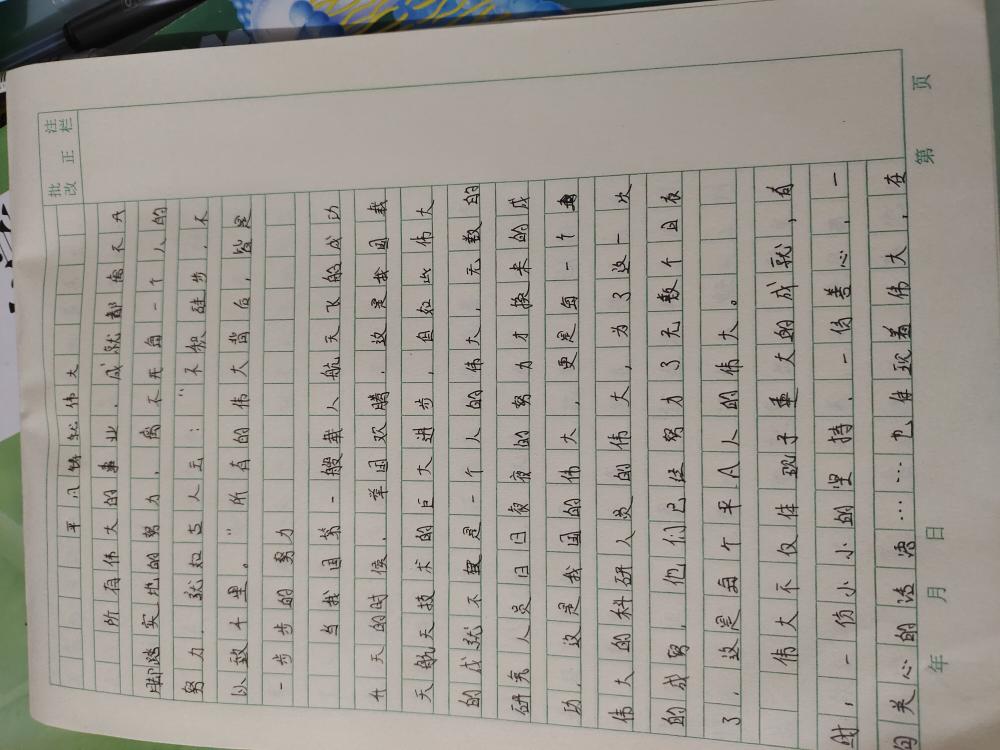 批改 正 注栏
平凡铸就伟大
所有伟大的事业，成就都离不开
脚踏实地的努力，离不开每一个人的
努力，就如古人云：“不积硅步，不
以致千里。”所有的伟大背后，皆是
一步步的努力
当我国第一般载人航天飞船成功
升天的时候，举国欢腾，这是我国载
天航天技术的巨大进步，自如此伟大
的成就不是一个人的伟大，无数的
研究人员日日夜夜的努力才换来的成
功，这是我国的伟大，更是每一个
伟大的科研人员的伟大，为了这一次
的成努，他们已经努力了无数个日夜
了，这是每个平凡人的伟大。
伟大不仅体现于重大的成就，有
时，一份小小的坚持，一份善心，一
句关心的话语……也体现着伟大，在
年 月 日 第 页